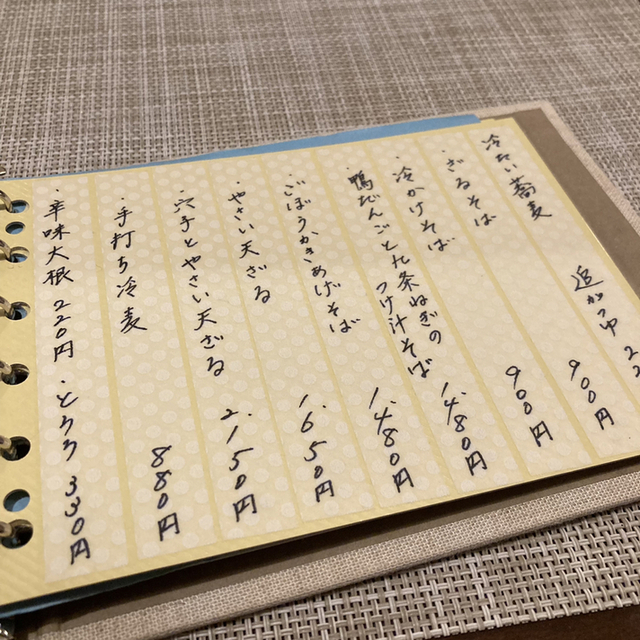 冷たい蕎麦 追がつゆ
・ざるそば 900円
・冷かけそば 900円
・鴨だんごと九条ねぎのつけ汁そば 1,480円
・ごぼうかきあげそば 1,480円
・やさい天ざる 1,650円
・穴子とやさい天ざる 2,150円
・手打ち冷麦 880円
・辛味大根 220円 ・とろろ 330円